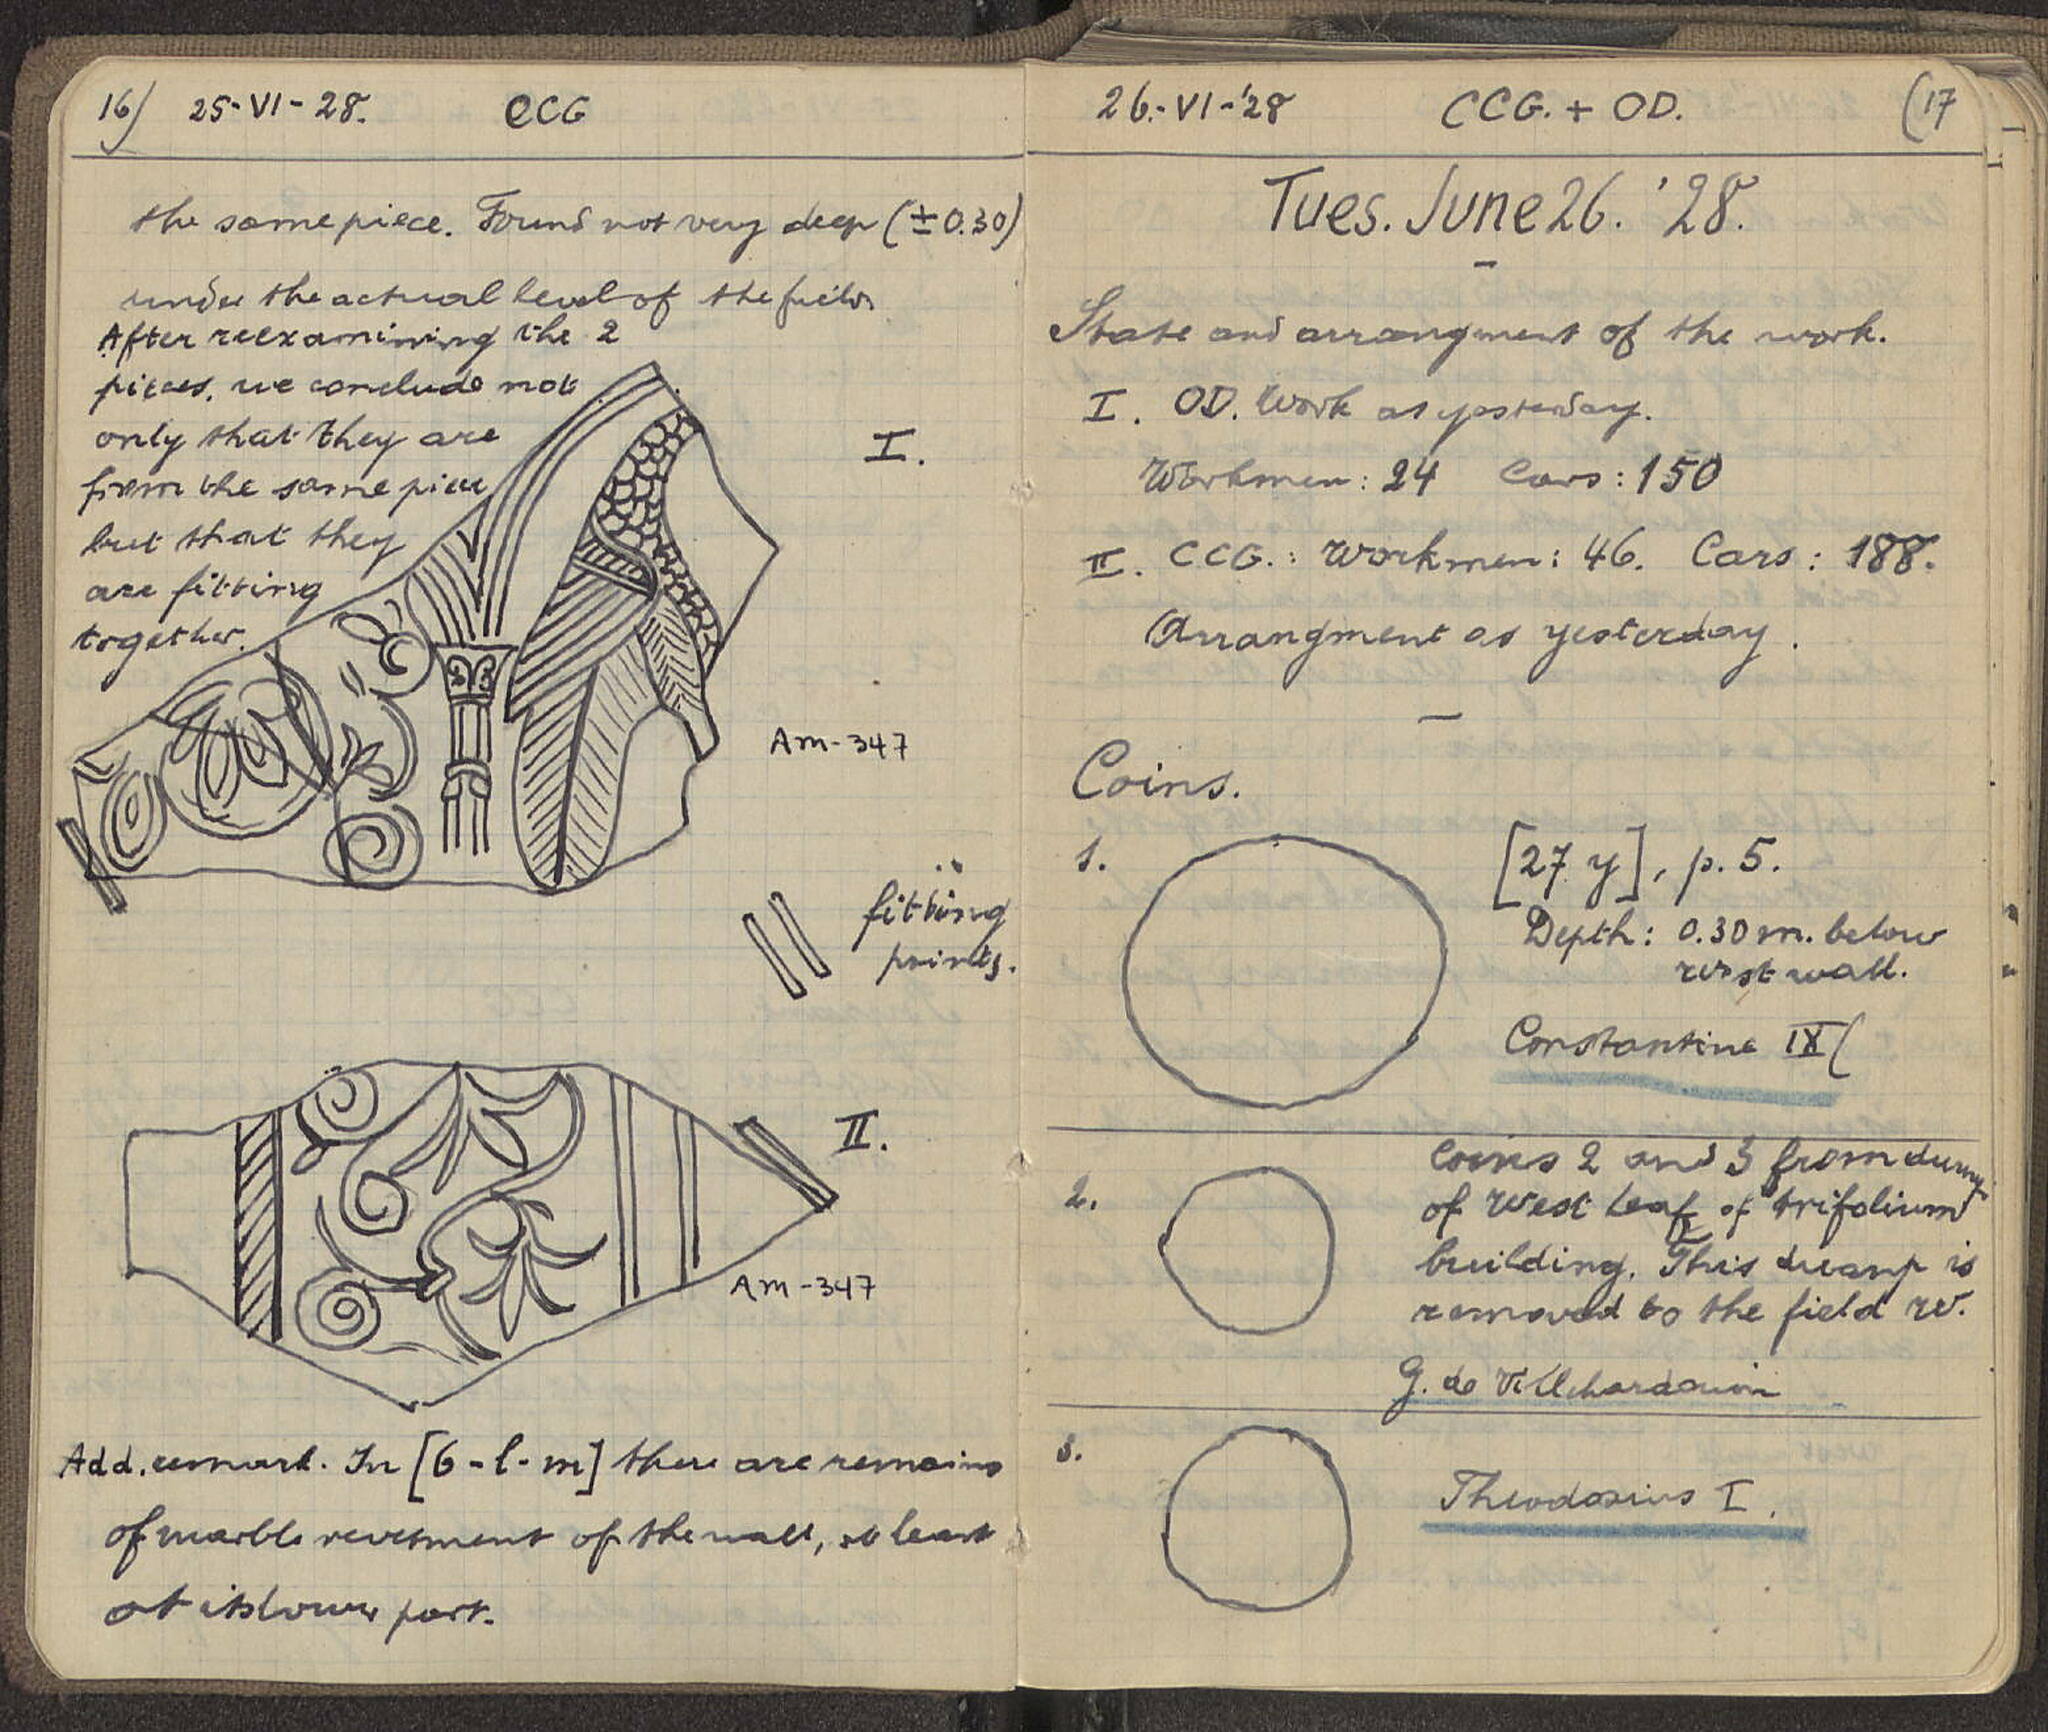 16) 25-VI-28. CCG
the same piece. Found not very deep (±0.30)
under the actual level of the field.
After reexamining the 2
pieces, we conclude not
only that they are
from the same piece
but that they
are fitting
together.
I.
Am-347
fitting
points.
II.
Am-347
Add. remark. In [6-l-m] there are remains
of marble revetment of the wall, at least
at its lower part.
26.-VI-'28 CCG. + OD. (17
Tues. June 26. '28.
State and arrangment of the work.
I. OD. Work as yesterday.
Workmen: 24 Cars: 150
II. CCG.: Workmen: 46. Cars: 188.
Arrangment as yesterday.
Coins.
1. [27 y], p. 5.
Depth: 0.30 m. below
west wall.
Constantine IX (
2. Coins 2 and 3 from dump
of West Leaf of trifolium
building. This dump is
removed to the field W.
G. de Villehardouin
3.
Theodosius I.